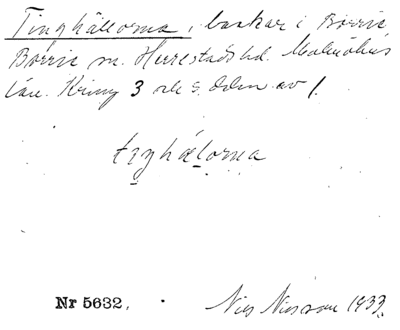 Tinghällorna, backar i Borrie
Borrie sn. Herrestads hd. Malmöhus
län. Kring 3 rle s. delen av 1.
tiŋhälorna
Nr 5632.
Nils Nilsson 1933.